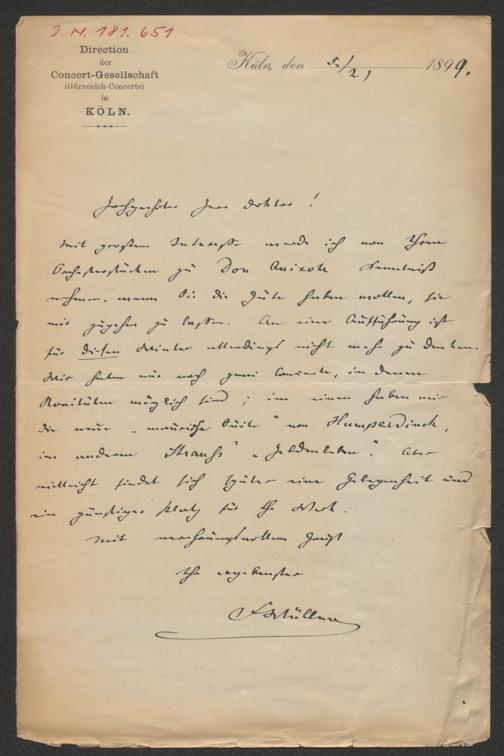 J. N. 181.651
Direction
der
Concert-Gesellschaft
(Gürzenich-Concerte)
in
KÖLN.
Köln, den 5/21 1899.
Hochgeehrter Herr Doktor!
Mit großem Interesse werde ich von Ihren
Orchesterstücken zu Don Quixote Kenntniß
nehmen, wenn Sie die Güte haben wollen, sie
mir zugehen zu lassen. An eine Aufführung ist
für diesen Winter allerdings nicht mehr zu denken.
Wir haben nur noch zwei Concerte, in denen
Novitäten möglich sind; im einen haben wir
die neue „maurische Suite" von Humperdinck,
im anderen Strauß' „Heldenleben". Aber
vielleicht findet sich später eine Gelegenheit und
ein günstiger Platz für Ihr Werk.
Mit verehrungsvollem Gruß
Ihr ergebenster
F Wüllner